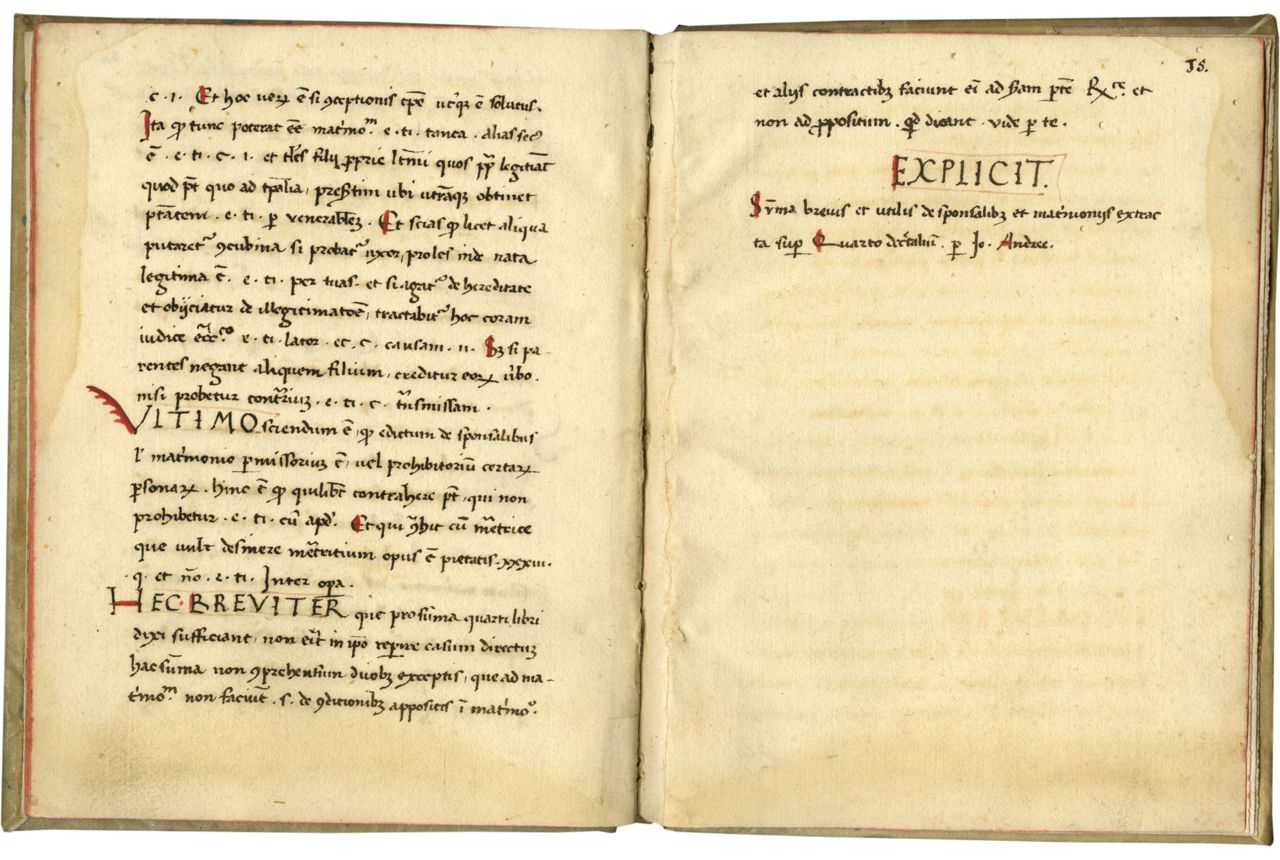 c · 1 · Et hoc veꝝ ē si ꝯceptionis tꝑe utꝰqꝫ ē solutus ·
Ita ꝙ tunc poterat eē mat'moᵐ · e · ti · tanta · alias secꝰ
ē · e · ti · c · 1 · et tles filij ꝓprie ltimi quos pp legitiat
quod pt quo ad tpalia, p̄sertim ubi utraqꝫ obtinet
ptatem · e · ti · ꝑ venerabilē · Et scias ꝙ licet aliqua
putaret᷒ ꝯcubina si probat᷒ uxor, proles inde nata
legitima ē · e · ti · per tuas · et si agat᷒ de hereditate
et obijciatur de illegitimatōe, tractabit᷒ hoc coram
iudice eccᶜᵒ e · ti · lator · et · c · causam · ii · Sꝫ si pa-
rentes negant aliquem filium, creditur eoꝝ v̄bo ·
nisi probetur contrariuꝫ · e · ti · c · t̄nsmissam ·
VLTIMO sciendum ē, ꝙ edictum de sponsalibus
l' mat'monio ꝑmissoriuꝫ ē, vel prohibitoriū certaꝝ
ꝑsonaꝝ · hinc ē ꝙ quilibꝫ contrahere pt, qui non
prohibetur · e · ti · cū apd' · Et qui ꝯhit cū meretrice
que vult desinere meretritium opus ē pietatis · xxxiii ·
· q · et no · e · ti · Inter opa ·
HEC BREVITER que pro suma quarti libri
dixi sufficiant, non erit in ipo reperire casum directuꝫ
hac suma non ꝯprehensum duobꝫ exceptis, que ad ma-
t'moᵐ non faciūt · s · de ꝯditionibꝫ appositis ī mat'moᵒ ·
J5.
et alijs contractibꝫ faciunt ei ad Rᶜᵉ · et
non ad ꝓpositum · qd dicant · vide ꝑ te ·
EXPLICIT.
Suma brevis et utilis de sponsalibꝫ et mat'monijs extrac
ta suꝑ Quarto decretaliū · ꝑ Jo · Andree ·